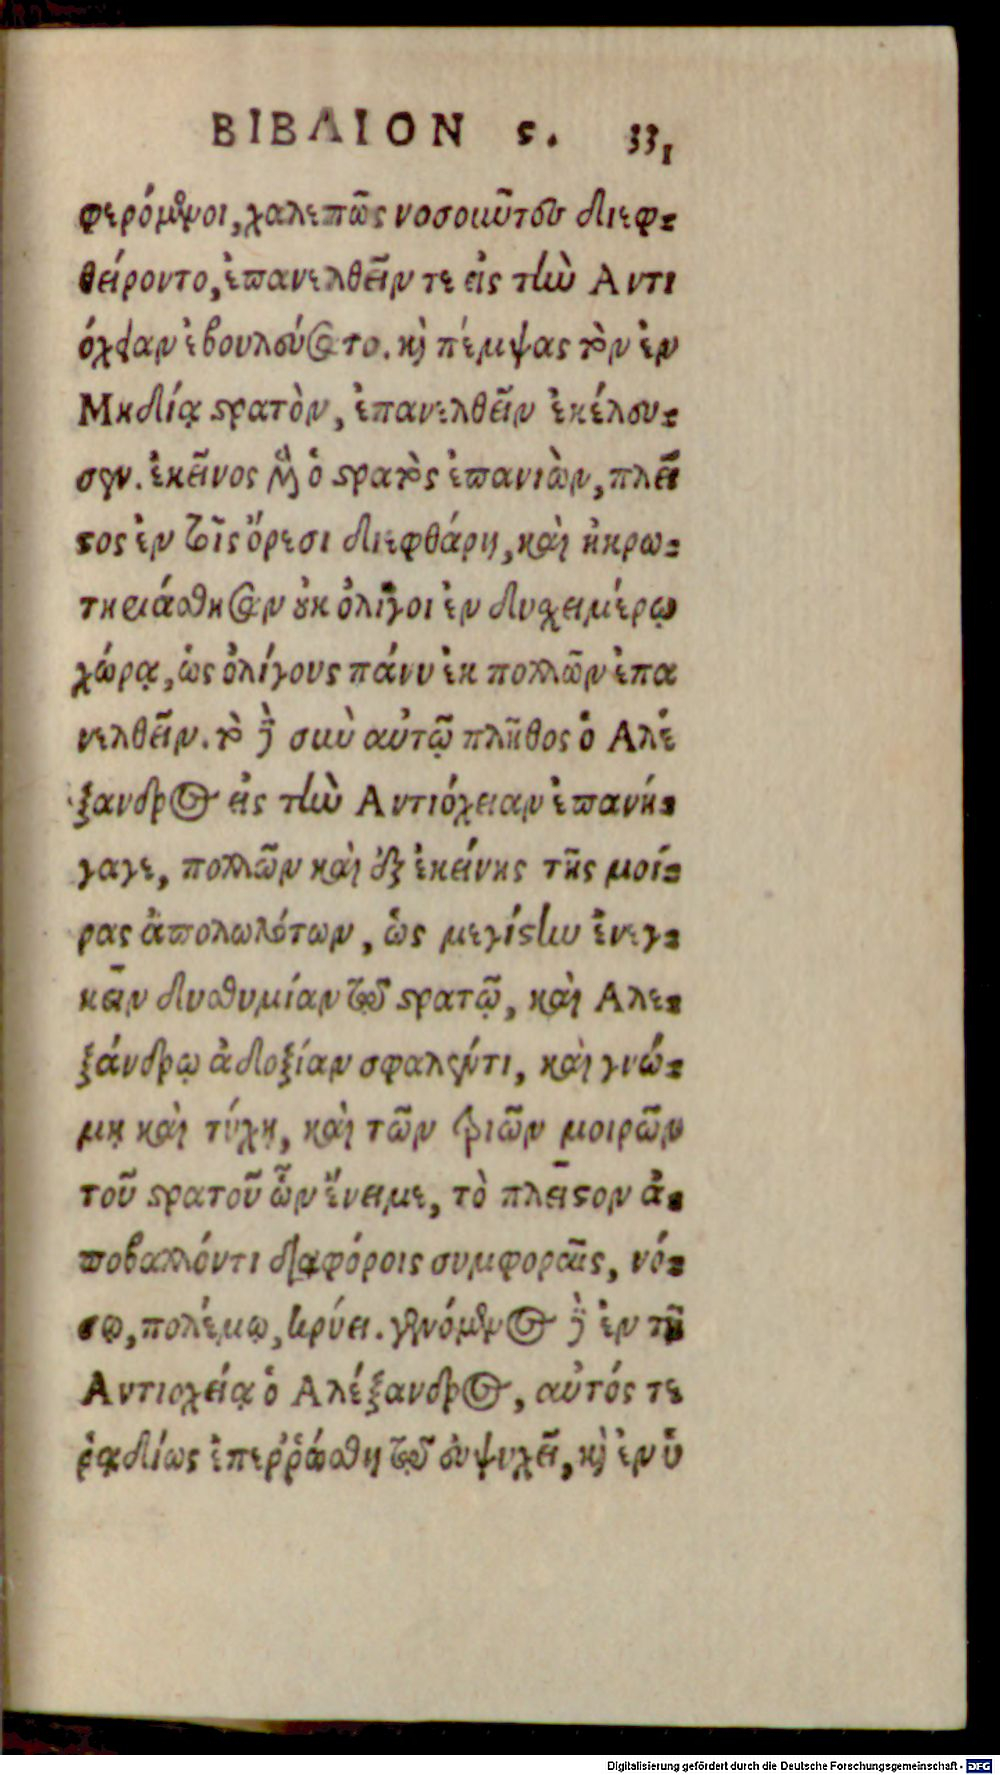 ΒΙΒΛΙΟΝ ϛ. 331
φερόμενοι, χαλεπῶς νοσοιῶτες διεφ-
θείροντο, ἐπανελθεῖν τε εἰς τὴν Αντι
όχειαν ἐβουλεύσατο. καὶ πέμψας τὸν ἐν
Μηδίᾳ στρατὸν, ἐπανελθεῖν ἐκέλευ-
σεν. ἐκεῖνος μὲν ὁ στρατὸς ἐπανιὼν, πλεῖ
στος ἐν τοῖς ὄρεσι διεφθάρη, καὶ ἠκρω-
τηριάσθησαν οὐκ ὀλίγοι ἐν δυχειμέρῳ
χώρᾳ, ὡς ὀλίγους πάνυ ἐκ πολλῶν ἐπα
νελθεῖν. τὸ δὲ σὺν αὐτῷ πλῆθος ὁ Αλέ
ξανδρος εἰς τὴν Αντιόχειαν ἐπανή-
γαγε, πολλῶν καὶ ἐξ ἐκείνης τῆς μοί-
ρας ἀπολωλότων, ὡς μεγίστην ἐνεγ-
κεῖν δυσθυμίαν τῷ στρατῷ, καὶ Αλε-
ξάνδρῳ ἀδοξίαν σφαλέντι, καὶ γνώ-
μῃ καὶ τύχῃ, καὶ τῶν τριῶν μοιρῶν
τοῦ στρατοῦ ὧν ἔνειμε, τὸ πλεῖστον ἀ-
ποβαλλόντι διαφόροις συμφοραῖς, νό-
σῳ, πολέμῳ, κρύει. γενόμενος δὲ ἐν τῇ
Αντιοχείᾳ ὁ Αλέξανδρος, αὐτός τε
ῥᾳδίως ἐπεῤῥώσθη τῷ εὐψυχεῖ, καὶ ἐν ὑ
Digitalisierung gefördert durch die Deutsche Forschungsgemeinschaft - DFG